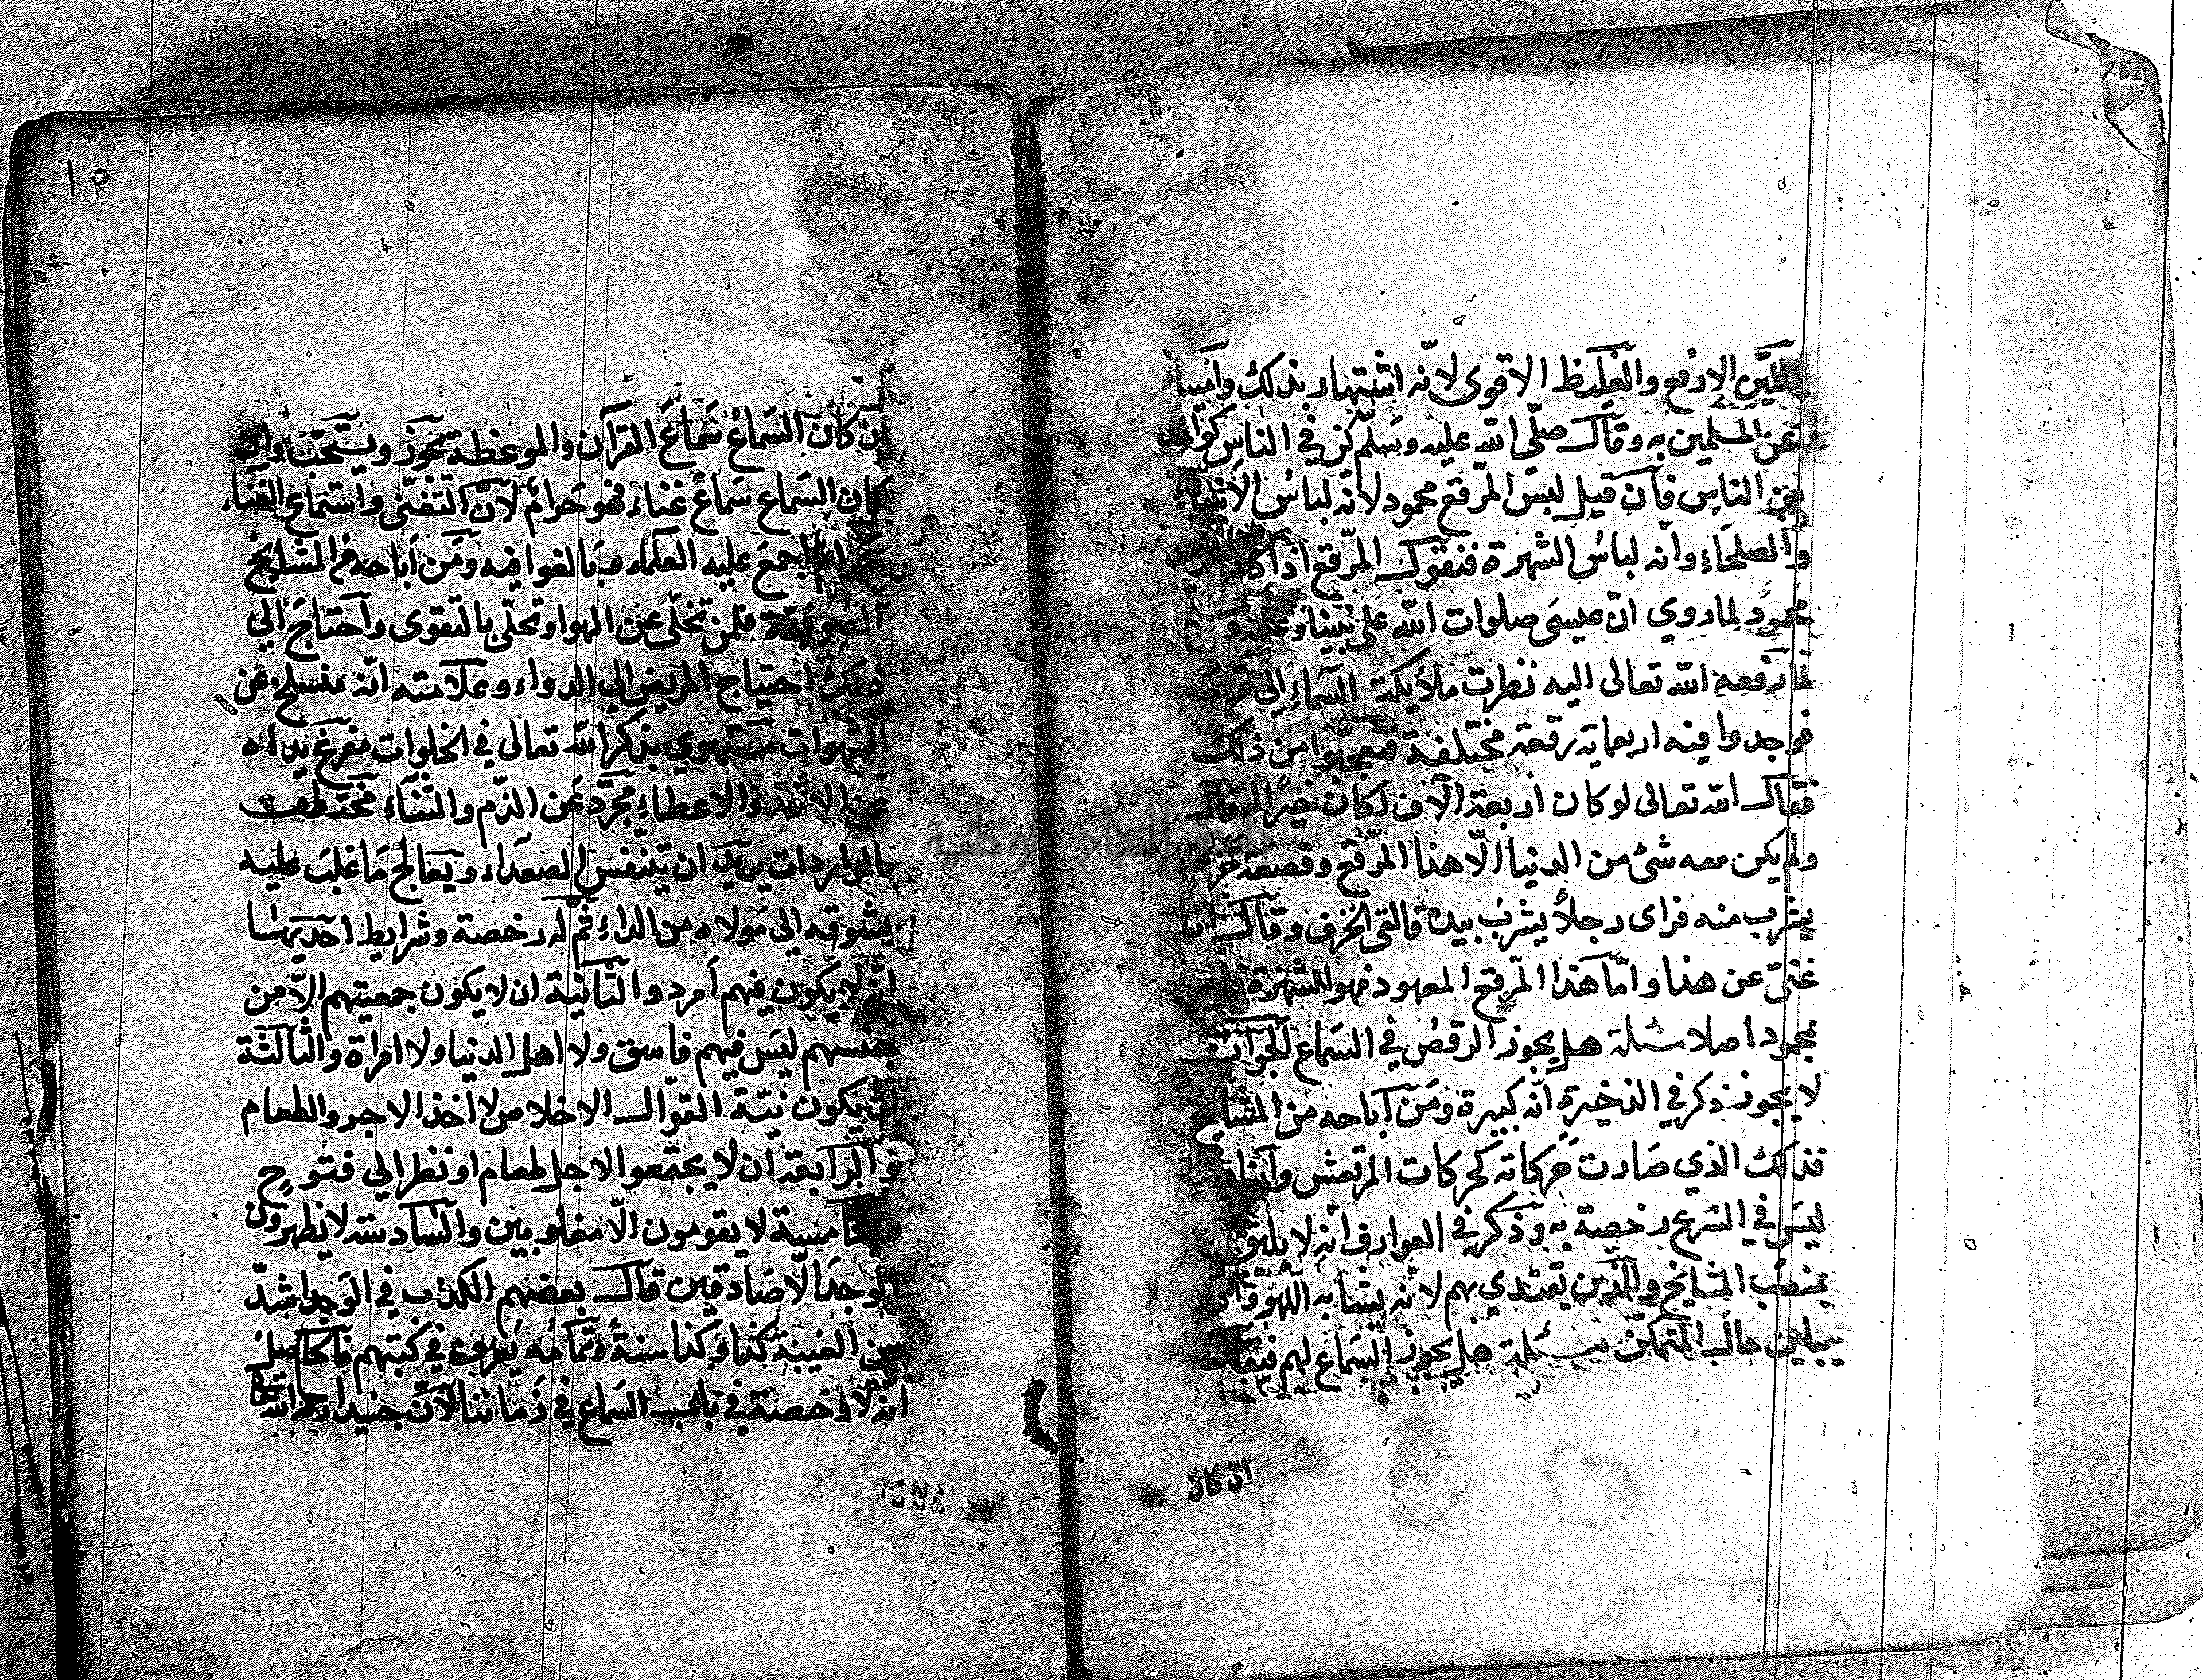 اللين الارفع والغليظ الاقوى لانه اشتهار بذلك وامتيا
عن المسلمين به وقال صلّى الله عليه وسلّم كن في الناس كوا
من الناس فان قيل لبس المرقع محمود لانه لباس الانبياء
والصلحاء وانه لباس الشهرة فنقول المرقع اذا كان
محمود لما روي انّ عيسى صلوات الله على نبينا وعليه
لما رفعه الله تعالى اليه نظرت ملائكة السماء الى مرقعه
فوجدوا فيه اربعماية رقعة مختلفة فتعجبوا من ذلك
فقال الله تعالى لو كان اربعة الاف لكان خيرا له وقال
ولم يكن معه شئ من الدنيا الّا هذا المرقع وقصعة
يشرب منه فراى رجلاً يشرب بيده فالقى الخزف وقال انا
غنىّ عن هذا وامّا هذا المرقع المعهود فهو للشهرة فليس
بمحمود اصلا مسئلة هل يجوز الرقص في السماع الجواب
لا يجوز ذكر في الذخيرة انّه كبيرة ومن اباحه من المشايخ
فذلك الذي صارت حركاته كحركات المرتعش وانه
ليس في الشرع رخصة به وذكر في العوارف انّه لا يليق
بمنصب المشايخ والذين يقتدي بهم لانه يشابه اللهو و
يباين حال المتمكن مسئلة هل يجوز السماع لهم فيقال
ان كان
ان كان السماع سماع القرآن والموعظة يجوز ويستحب وان
كان السماع سماع غناء فهو حرام لانّ التغنّى واستماع الغناء
حرام اجمع عليه العلماء وبالغوا فيه ومن اباحه من المشايخ
الصوفية فلمن تخلّى عن الهوا وتحلّى بالتقوى واحتاج الي
ذلك احتياج المريض الي الدواء وعلامته انّه منسلخ عن
الشهوات مستهوي بذكر الله تعالى في الخلوات مفرغ يداه
عن الاخذ والاعطاء مجرّد عن الذم والثناء مختطف
بالواردات يريد ان يتنفس الصعداء ويعالج ما غلب عليه
بشوقه الى مولاه من الداء ثم له رخصة وشرايط احديها
ان لا يكون فيهم امرد والثانية ان لا يكون جمعيتهم الّا من
جنسهم ليس فيهم فاسق ولا اهل الدنيا ولا امراة والثالثة
ان يكون نيّة القوّال الاخلاص لا اخذ الاجر والطعام
والرابعة ان لا يجتمعوا لاجل طعام او نظر الي فتوح
والخامسة لا يقومون الّا مغلوبين والسادسة لا يظهرون
الوجد الّا صادقين قال بعضهم الكذب في الوجد اشدّ
من الغيبة كذا وكذا سنة وتمامه يعرف في كتبهم فالحاصل
انه لا رخصة في باب السماع في زماننا لانّ جنيدا رحمه الله